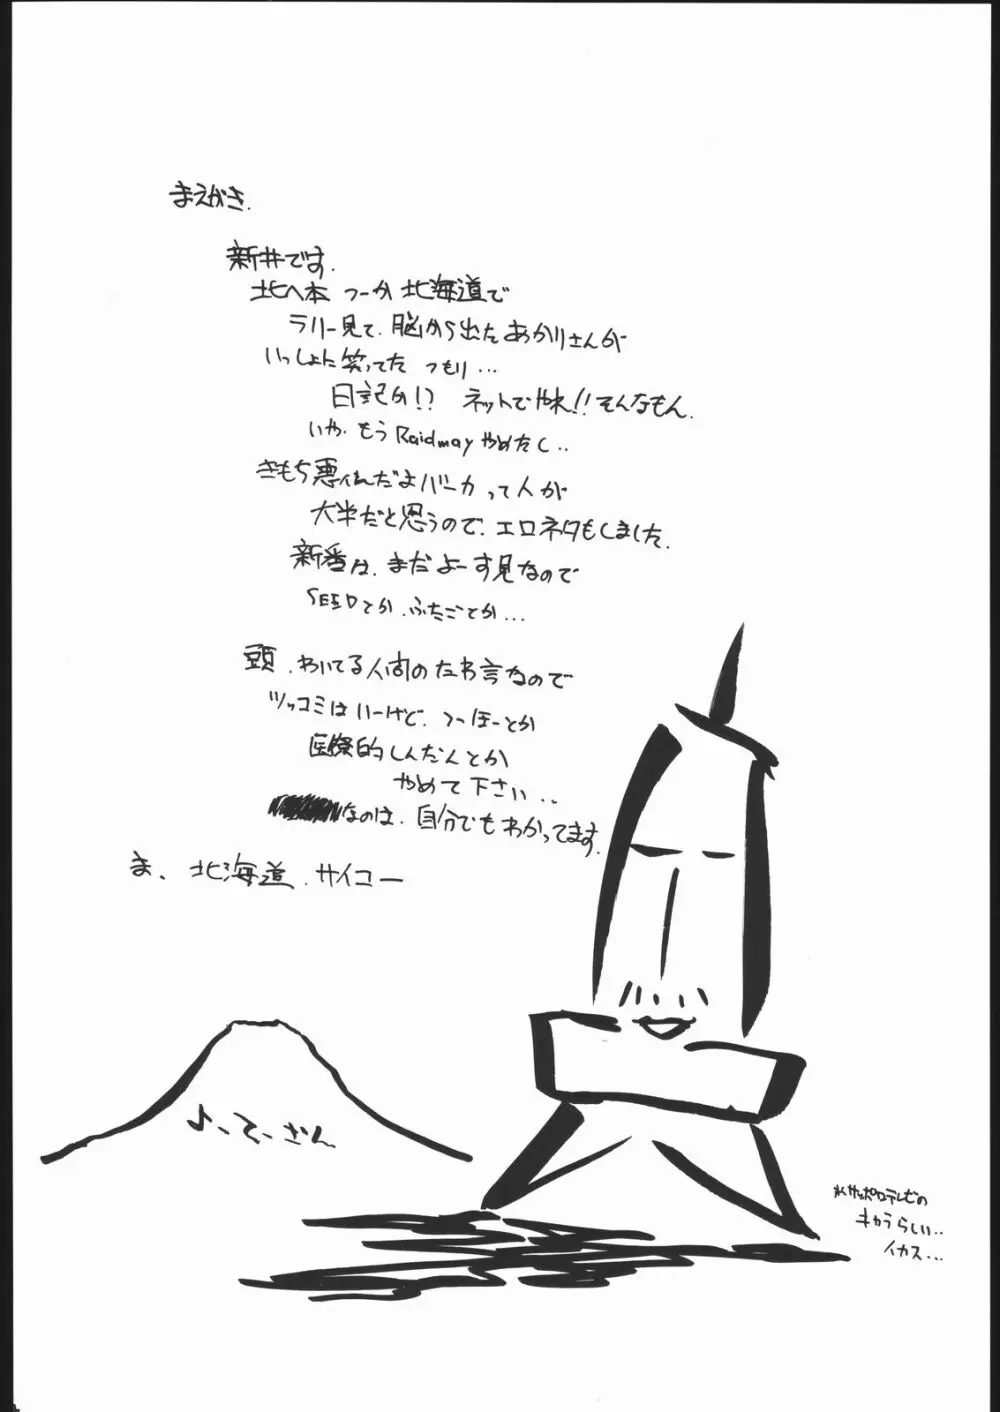 まえがき.
新井です.
北へ本 つーか 北海道で
ラリー見て、脳から出たあかりさんが
いっしょに笑ってた つもり...
日記か!? ネットでやれ!! そんなもん.
いや、もう Raidmay やめたし..
きもち悪いんだよバーカ って人が
大半だと思うので、エロネタもしました.
新番は、まだよーす見なので
SEEDとか、ふたごとか...
頭、わいてる人間のたわ言なので
ツッコミはいーけど、つーほーとか
医療的しんだんとか
やめて下さい..
なのは、自分でもわかってます.
ま、北海道、サイコー
よーてーさん
※サッポロテレビの
キャラらしい..
イカス...